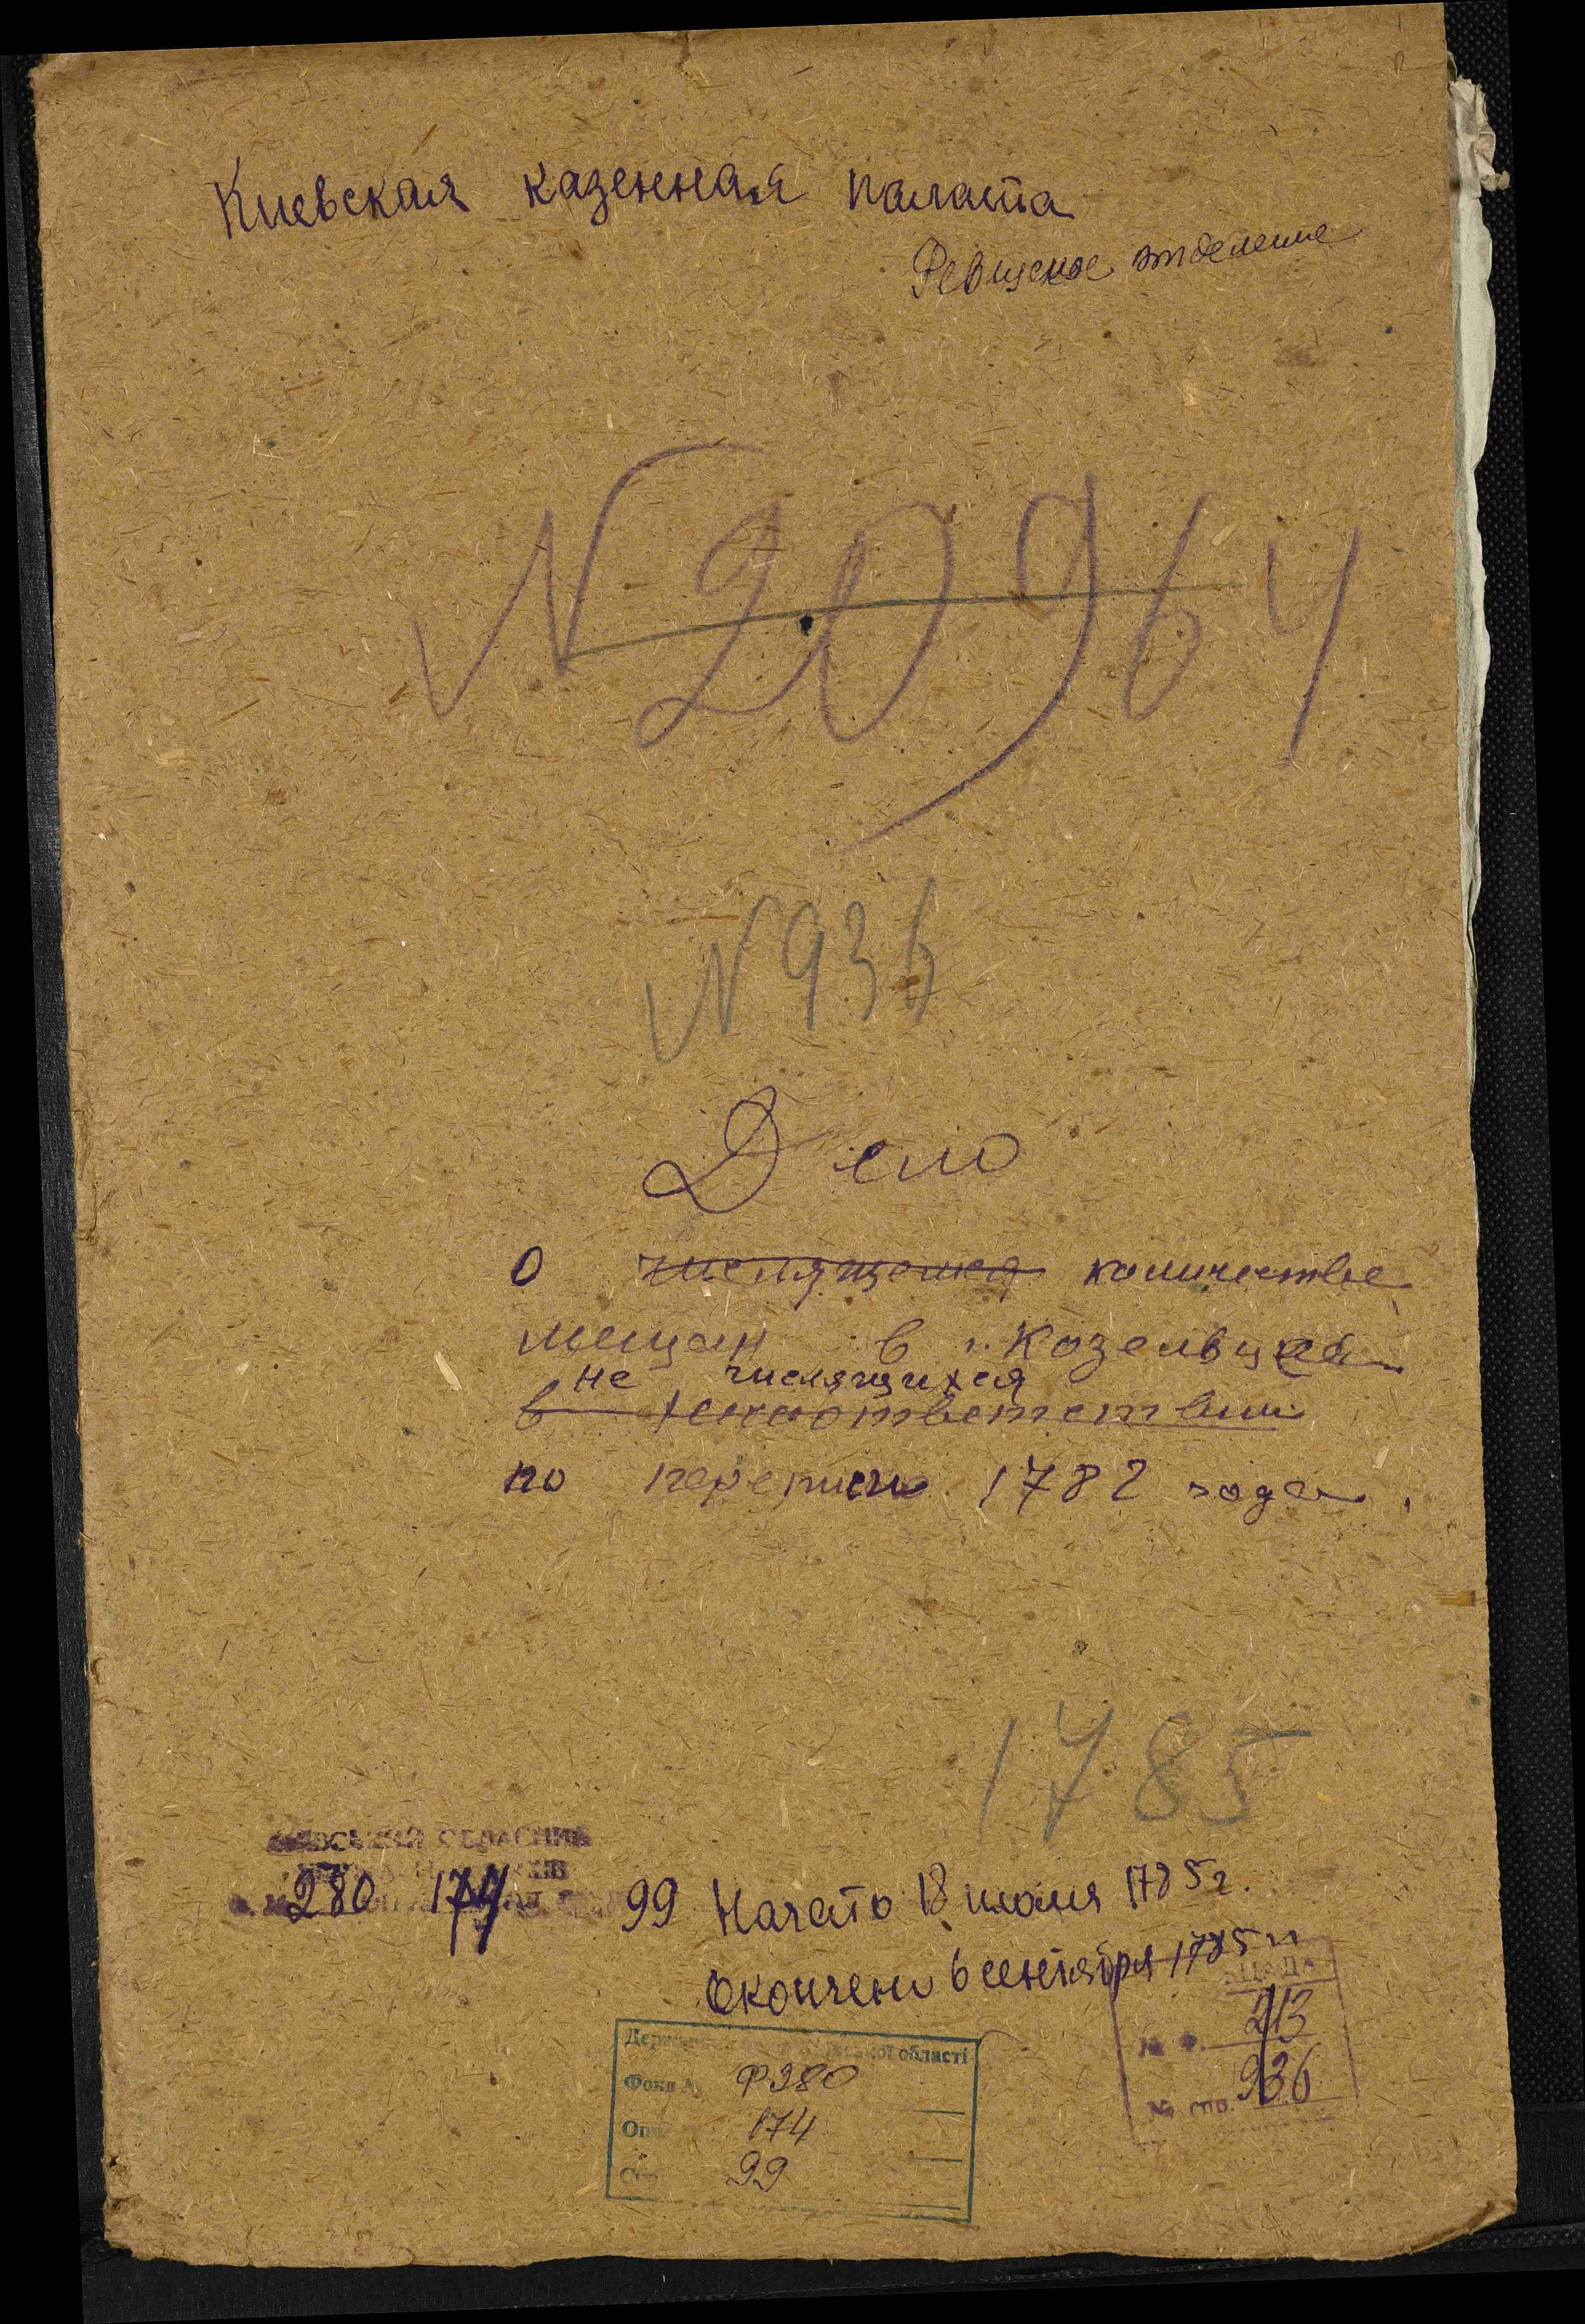 Киевская казенная палата
Ревизское отделение
N 20964
N 936
Дело
О числящемся количестве
мещан в г. Козельце
не числящихся
в
по переписи 1782 года.
1785
ОБЛАСНИЙ
280 174 99 Начато 18 июля 1785 г.
Окончено 6 сентября 1785 г.
області
Фонд № Ф280
174
99
№ Ф. 213
№ спр. 936